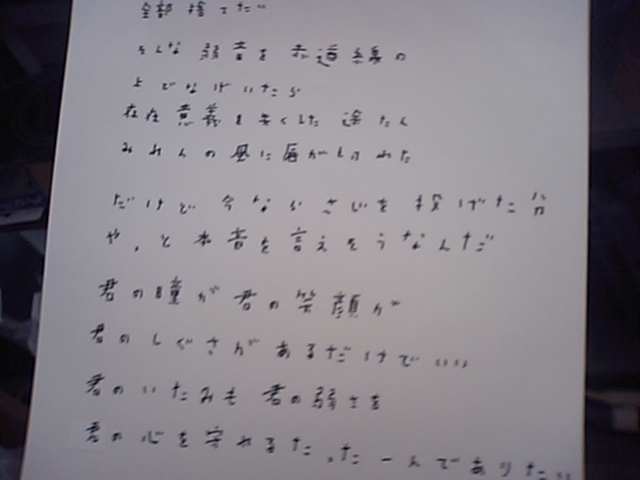 全部捨てただ
そんな弱音を赤道線の
上でなげいたら
存在意義を失くした途たん
みみんの風に唇が
だけど今ならさいを投げた分
や,と本音を言えそうなんだ
君の瞳が君の笑顔が
君のしぐさがあるだけでいい
君のいたみも君の弱さを
君の心を守れるた,た一人でありたい